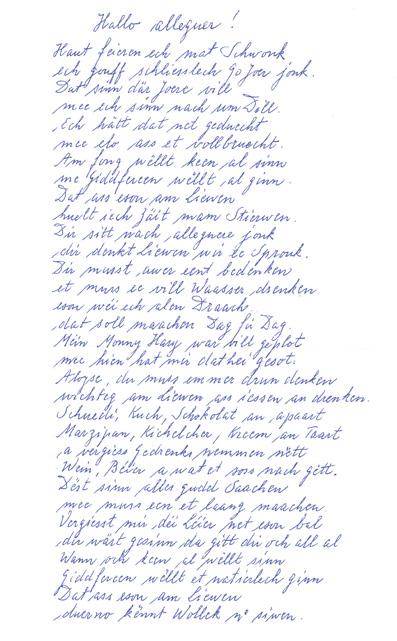 Hallo alleguer!
Haut feieren ech mat Schwonk
ech gouff schliesslech 90 Joer jonk.
Dat sinn där Joere vill
mee ech sinn nach um Dill.
Ech hätt dat net geduecht
mee elo ass et vollbruecht.
Am Jong wëllt keen al sinn
me Giddfereen wëllt al ginn.
Dat ass esou am Liewen
huelt iech Zäit mam Stierwen.
Dir sitt nach alleguere jonk
dir denkt Liewen wir ee Spronk.
Dir musst awer eent bedenken
et muss ee vill Waasser drenken
esou wéi ech alen Draach
dat soll maachen Dag fir Dag.
Mein Monny Hary war vill geplot
mee hien hat mir dat hei gesot.
Aloyse, du muss emmer drun denken
wichteg am Liewen ass iessen an drenken.
Schneeli, Kuch, Schokolat an apaart
Marzipan, Kichelcher, Kreem an Taart
a vergiess Gedrenks nemmen nëtt
Wein, Béier a wat et soss nach gëtt.
Dëst sinn alles gudd Saachen
mee muss een et laang maachen
Vergiesst mir déi Léier net esou bal
dir wärt gesinn da gitt dir och all al
Wann och keen al wëllt sinn
Giddfereen wëllt et natierlech ginn.
Dat ass esou am Liewen
duerno kënnt Wollek n° siwen.